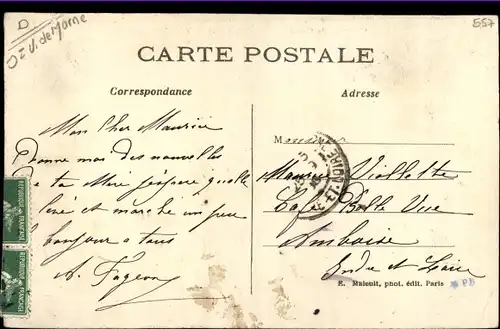 D
557
D=V. de Marne
CARTE POSTALE
Correspondance
Adresse
Mon cher Maurice
Donne moi des nouvelles
de ta Mère j'espère qu'elle
et marche un peu
bonjour a tous
A. Fageon
Monsieur
Maurice Violette
Café Belle Vue
Amboise
Indre et Loire
E. Malcuit, phot. édit. Paris
* PD